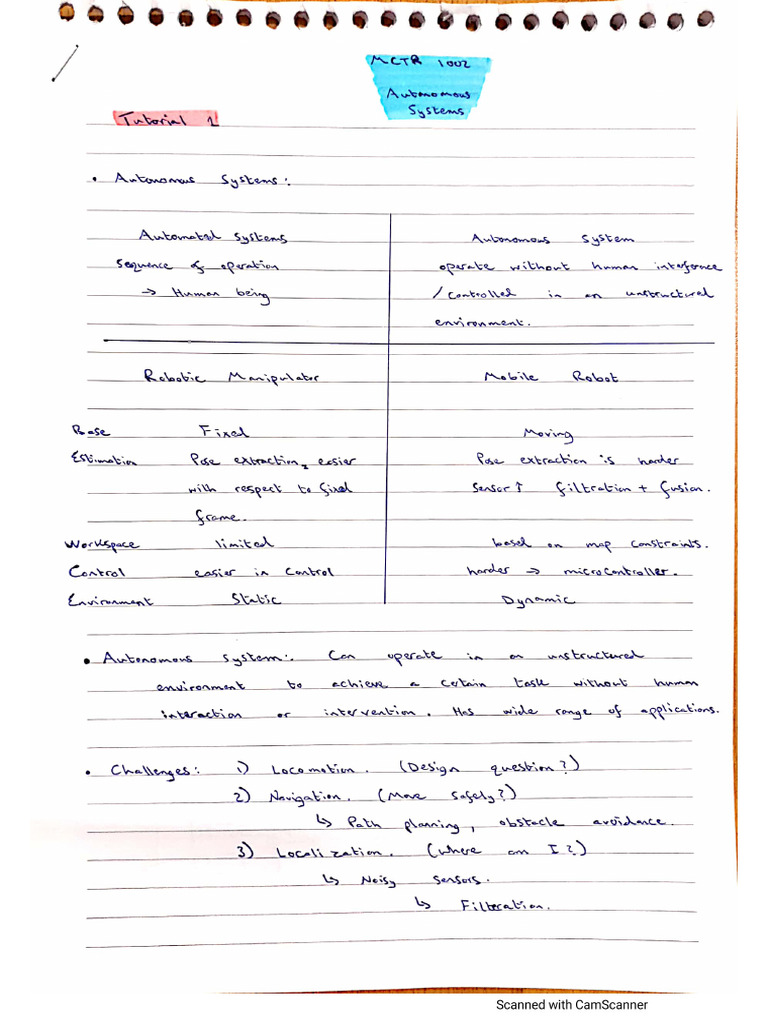 MCTR 1002
Autonomous
Systems
Tutorial 1
• Autonomous Systems:
Automated Systems
Sequence of operation
→ Human being
Autonomous System
operate without human interference
/controlled in an unstructured
environment.
Robotic Manipulator
Mobile Robot
Base Fixed Moving
Estimation Pose extraction, easier Pose extraction is harder
with respect to fixed Sensor↑ filtration + fusion.
frame.
Workspace limited based on map constraints.
Control easier in control harder → microcontroller.
Environment Static Dynamic
• Autonomous System: Can operate in an unstructured
environment to achieve a certain task without human
interaction or intervention. Has wide range of applications.
• Challenges: 1) Locomotion. (Design question?)
2) Navigation. (Move safely?)
↳ Path planning, obstacle avoidance.
3) Localization. (Where am I?)
↳ Noisy sensors.
↳ Filteration.
Scanned with CamScanner